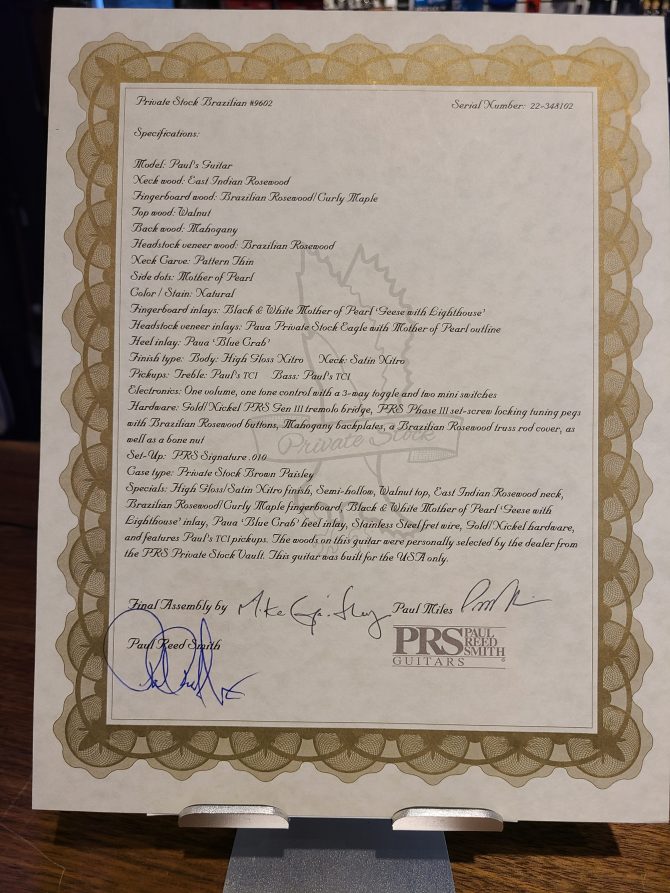 Private Stock Brazilian #9602 Serial Number: 22-348102
Specifications:
Model: Paul's Guitar
Neck wood: East Indian Rosewood
Fingerboard wood: Brazilian Rosewood/Curly Maple
Top wood: Walnut
Back wood: Mahogany
Headstock veneer wood: Brazilian Rosewood
Neck Carve: Pattern Thin
Side dots: Mother of Pearl
Color / Stain: Natural
Fingerboard inlays: Black & White Mother of Pearl 'Geese with Lighthouse'
Headstock veneer inlays: Paua Private Stock Eagle with Mother of Pearl outline
Heel inlay: Paua 'Blue Crab'
Finish type: Body: High Gloss Nitro Neck: Satin Nitro
Pickups: Treble: Paul's TCI Bass: Paul's TCI
Electronics: One volume, one tone control with a 3-way toggle and two mini switches
Hardware: Gold/Nickel PRS Gen III tremolo bridge, PRS Phase III set-screw locking tuning pegs
with Brazilian Rosewood buttons, Mahogany backplates, a Brazilian Rosewood truss rod cover, as
well as a bone nut
Private Stock
Set-Up: PRS Signature .010
Case type: Private Stock Brown Paisley
Specials: High Gloss/Satin Nitro finish, Semi-hollow, Walnut top, East Indian Rosewood neck,
Brazilian Rosewood/Curly Maple fingerboard, Black & White Mother of Pearl 'Geese with
Lighthouse' inlay, Paua 'Blue Crab' heel inlay, Stainless Steel fret wire, Gold/Nickel hardware,
and features Paul's TCI pickups. The woods on this guitar were personally selected by the dealer from
the PRS Private Stock Vault. This guitar was built for the USA only.
Final Assembly by Mike Paul Miles
Paul Reed Smith
PRS PAUL REED SMITH
GUITARS